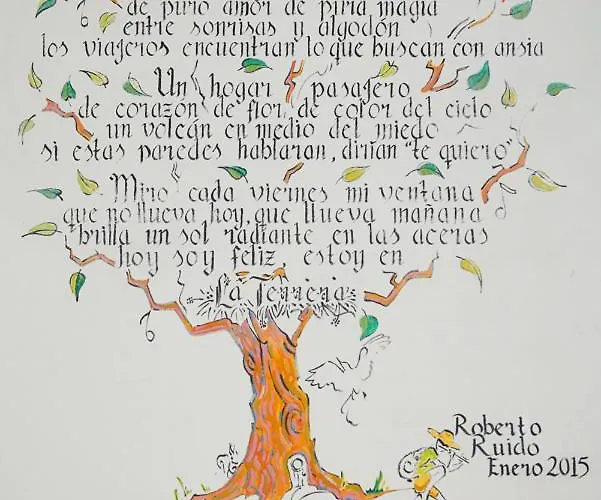 de puro amor de pura magia
entre sonrisas y algodón
los viajeros encuentran lo que buscan con ansia
Un hogar pasajero
de corazón de flor, de color del cielo
un volcán en medio del miedo
si estas paredes hablaran, dirían "te quiero"
Miro cada viernes mi ventana
que no llueva hoy, que llueva mañana
brilla un sol radiante en las aceras
hoy soy feliz, estoy en
La
Roberto
Ruido
Enero 2015